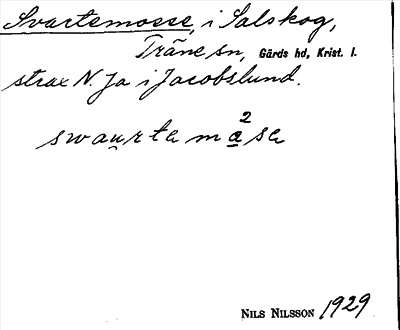 Svartemosse, i Salskog,
Träne sn, Gärds hd, Krist. l.
strax N. Ja i Jacobslund.
2
swaurta masa
Nils Nilsson 1929